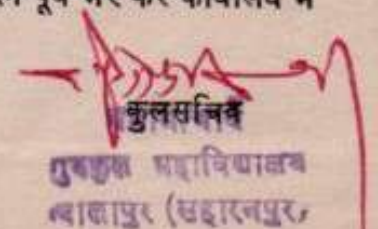 पूर्व भर कर कार्यालय में
कुलसचिव
गुरुकुल महाविद्यालय
ज्वालापुर (सहारनपुर,